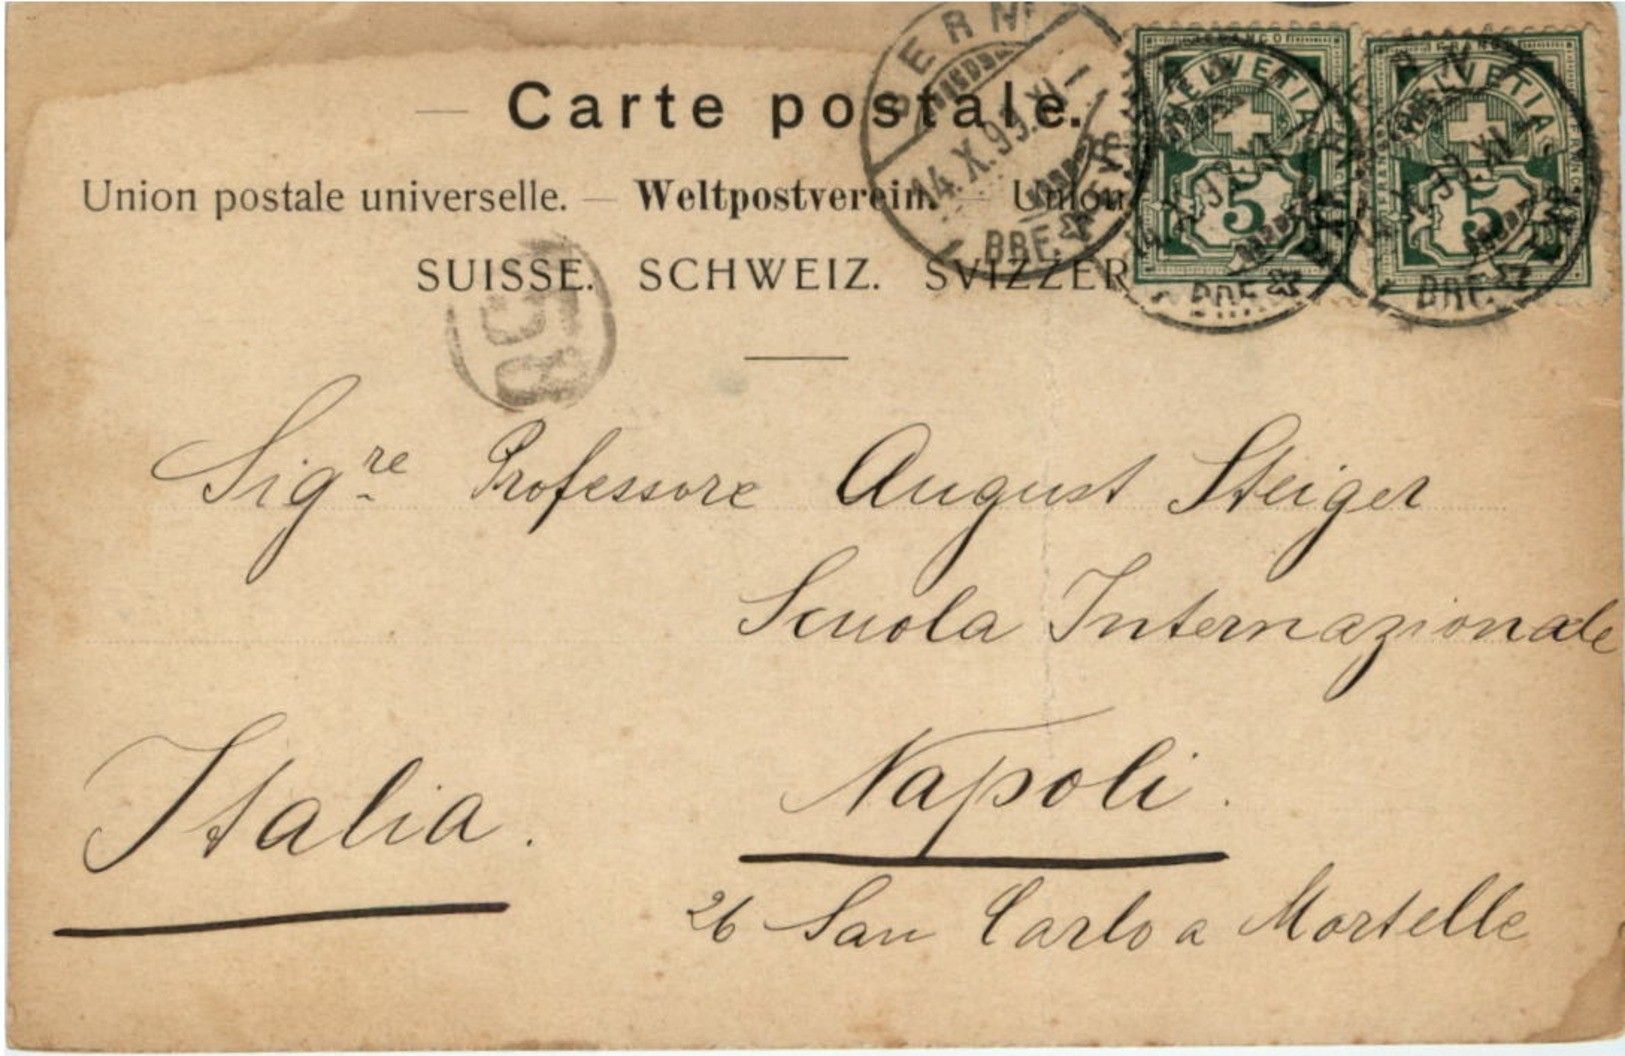 Carte postale.
Union postale universelle. — Weltpostverein. — Union
SUISSE. SCHWEIZ. SVIZZER
BERN
14.X.99.XI—
BRF.
HELVETIA
5
HELVETIA
5
Sigre Professore August Steiger
Scuola Internazionale
Napoli.
Italia.
26 San Carlo a Mortelle